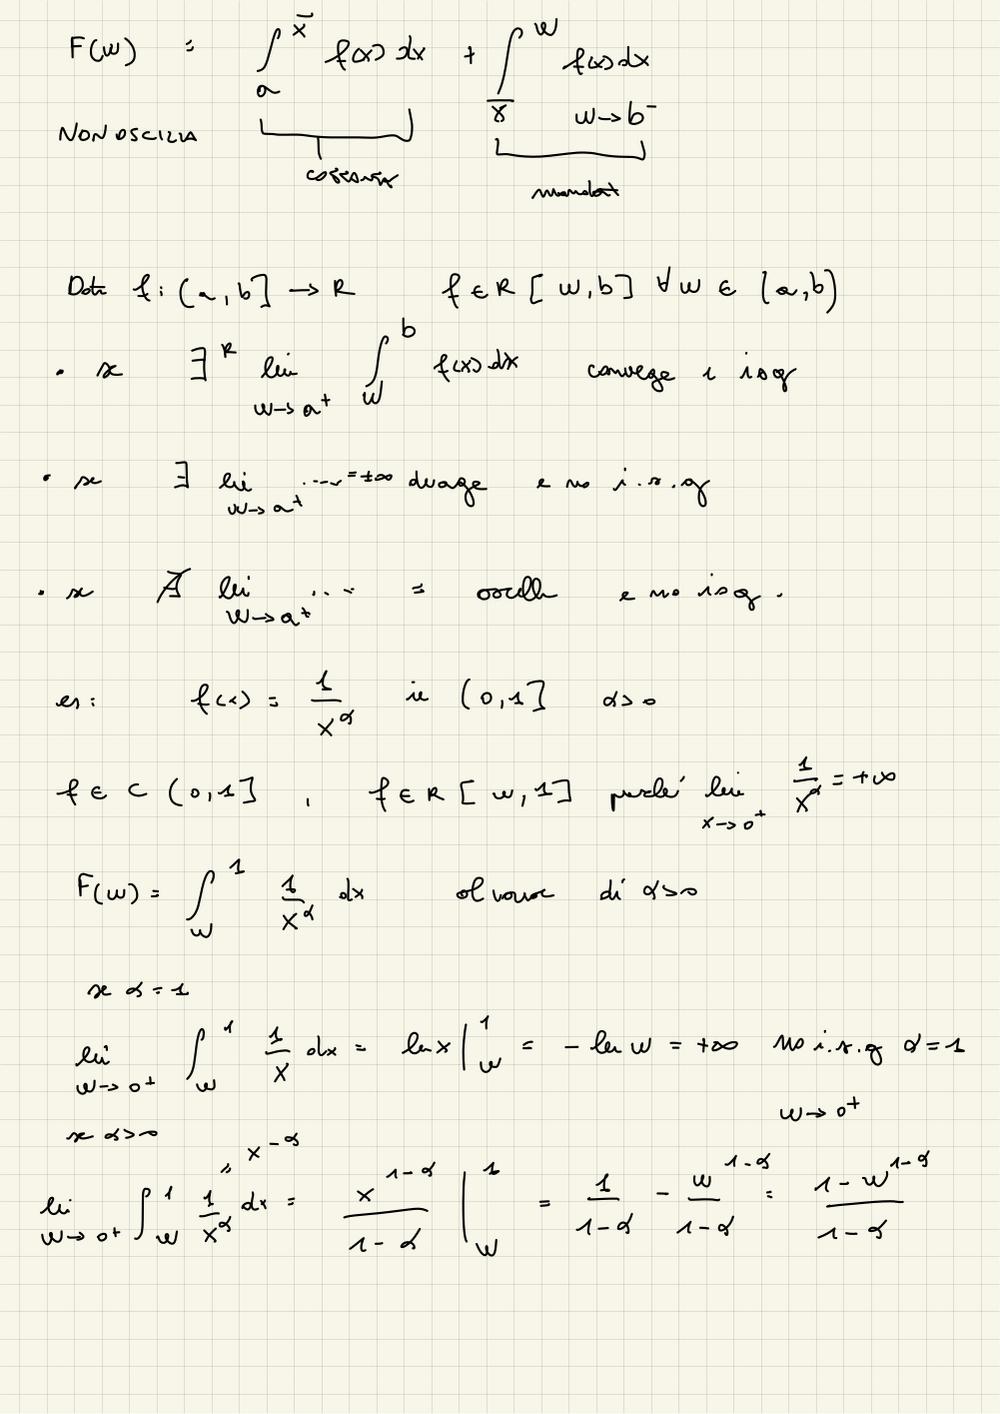 F(w) = ∫_a^x̄ f(x) dx + ∫_x̄^w f(x) dx
w → b⁻
NON OSCILLA
costante
Data f: (a, b] → R f ∈ R [w, b] ∀w ∈ (a, b)
• se ∃^R lim_{w→a⁺} ∫_w^b f(x) dx converge i isg
• se ∃ lim_{w→a⁺} .... = ±∞ diverge e no i.s.g
• se ∄ lim_{w→a⁺} ... = oscilla e no isg.
es: f(x) = 1/x^α in (0,1] α>0
f ∈ C (0,1] , f ∈ R [w,1] perché lim_{x→0⁺} 1/x^α = +∞
F(w) = ∫_w^1 1/x^α dx al variare di α>0
se α = 1
lim_{w→0⁺} ∫_w^1 1/x dx = ln x |_w^1 = - ln w = +∞ no i.s.g α=1
w → 0⁺
se α>0
" x^{-α}
lim_{w→0⁺} ∫_w^1 1/x^α dx = x^{1-α}/(1-α) |_w^1 = 1/(1-α) - w^{1-α}/(1-α) = (1-w^{1-α})/(1-α)